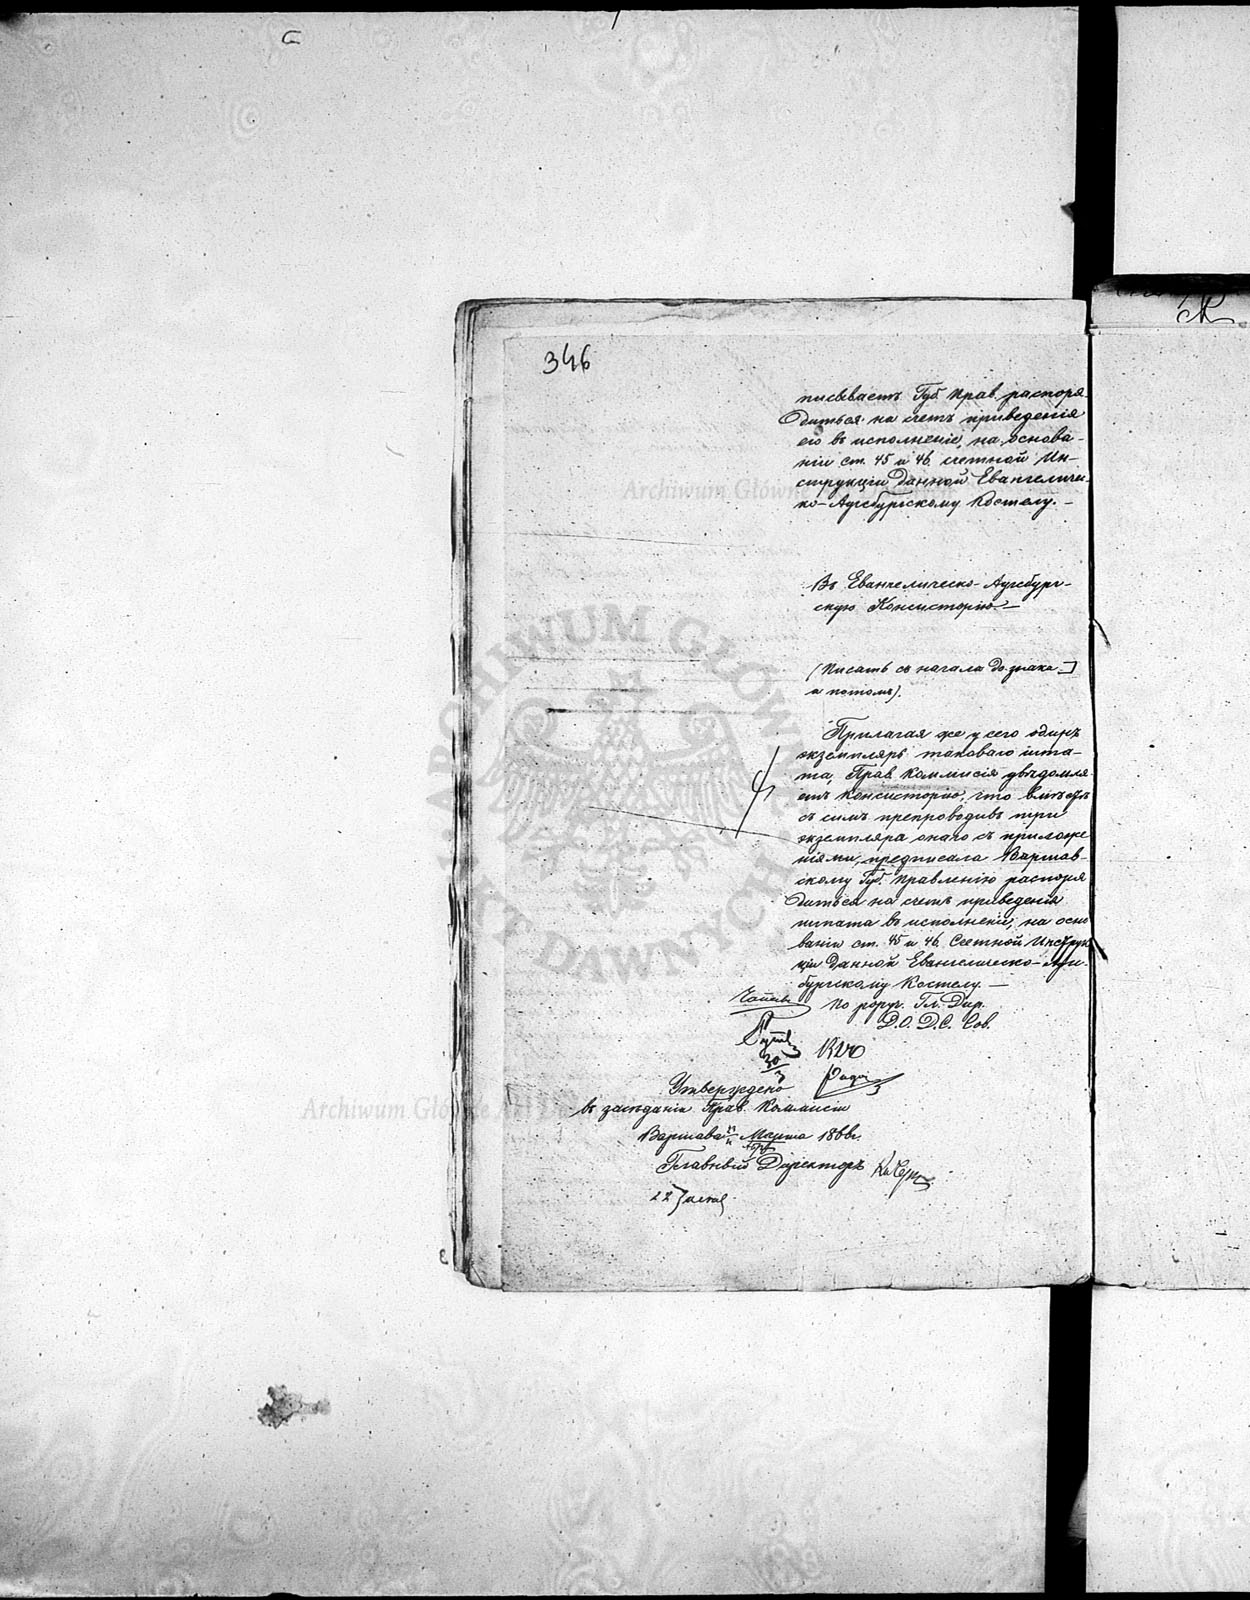 346
писываетъ Губ. Прав. распоря-
диться на счетъ приведенія
его въ исполненіе, на основа-
ніи ст. 45 и 46. счетной Ин-
струкціи данной Евангеличе-
ко-Аугсбургскому Костелу.-
Въ Евангелическо-Аугсбург-
скую Консисторію—
(Писать съ начала до знака
а потомъ).
Прилагая же у сего одинъ
экземпляръ таковаго шта-
та, Прав. Коммисія увѣдомля-
етъ Консисторію, что вмѣстѣ
съ симъ препроводивъ три
экземпляра онаго съ приложе-
ніями, предписала Варшав-
скому Губ. Правленію распоря
диться на счетъ приведенія
штата въ исполненіе, на осно
ваніи ст. 45 и 46. Счетной Инструк
ціи данной Евангелическо-Ауг-
бургскому Костелу.—
Читалъ По поруч. Гл. Дир.
Д.О. Д.С. Сов.
30/3
Утверждено
въ засѣданіи Прав. Коммисіи
Варшава Марта 1866г.
Главный Директоръ
22
Archiwum Główne
ARCHIWUM GŁÓWNE AKT DAWNYCH
Archiwum Główne Akt